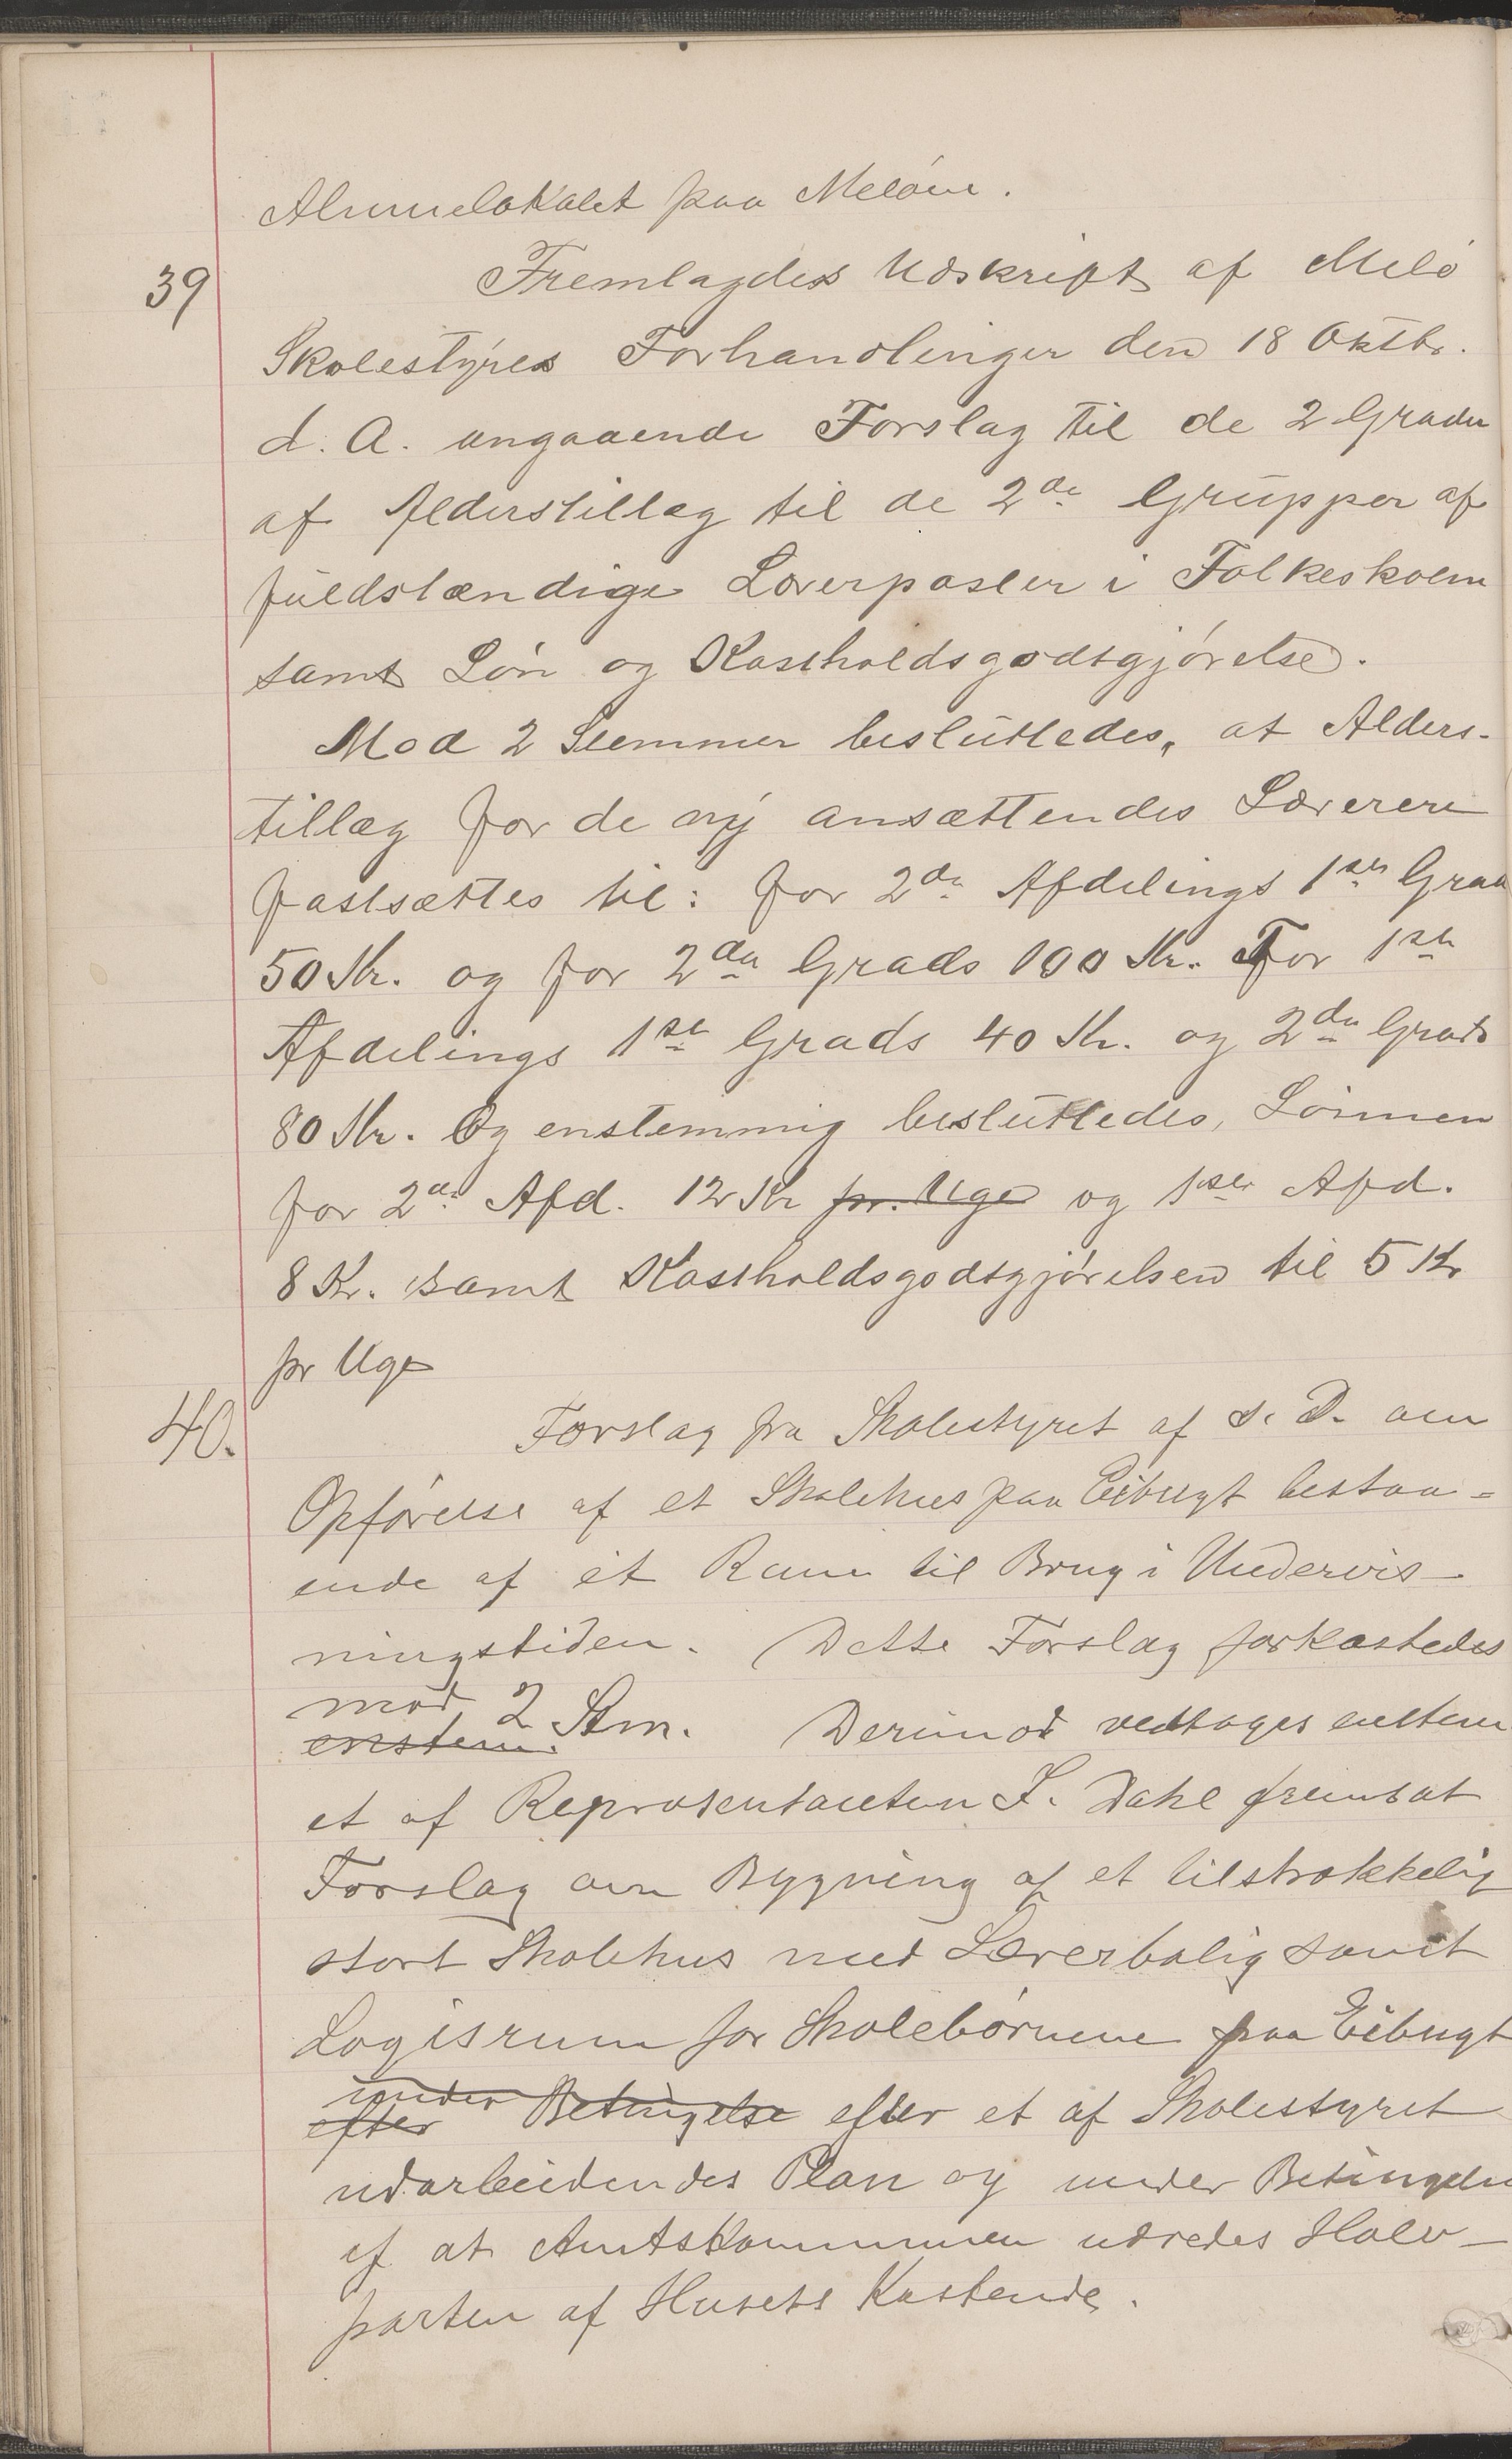 Almuelokalet paa Meløen.
39 Fremlagdes Udskript af Melø
Skolestyres Forhandlinger den 18 Oktbr.
d. A. angaaende Forslag til de 2 Grader
af Alderstillæg til de 2de Grupper af
fuldstændige Lærerposter i Folkeskolen
samt Løn og Kostholdsgodtgjørelse.
Mod 2 Stemmer besluttedes, at Alders-
tillæg for de ny ansættendes Lærere
fastsættes til: for 2den Afdelings 1ste Grad
50 Kr. og for 2den Grads 100 Kr. For 1ste
Afdelings 1ste Grads 40 Kr. og 2den Grads
80 Kr. Og enstemmig besluttedes, Lønnen
for 2den Afd. 12 Kr pr. Uge og 1ste Afd.
8 Kr. samt Kostholdsgodtgjørelsen til 5 Kr
pr Uge
40. Forslag fra Skolestyret af s. D. om
Opførelse af et Skolehus paa Eibugt bestaa-
ende af èt Rum til Brug i Undervis-
ningstiden. Dette Forslag forkastedes
mod 2 Stm.
enstem. Derimod vedtoges enstem
et af Repræsentanten I. Dahl fremsat
Forslag om Bygning af et tilstrækkelig
stort Skolehus med Lærerbolig samt
Logisrum for Skolebørnene paa Eibugt
under
efter Betingelse efter et af Skolestyret
udarbeidendes Plan og under Betingelse
af at Amtskommunen udredes Halv-
parten af Husets Kostende.